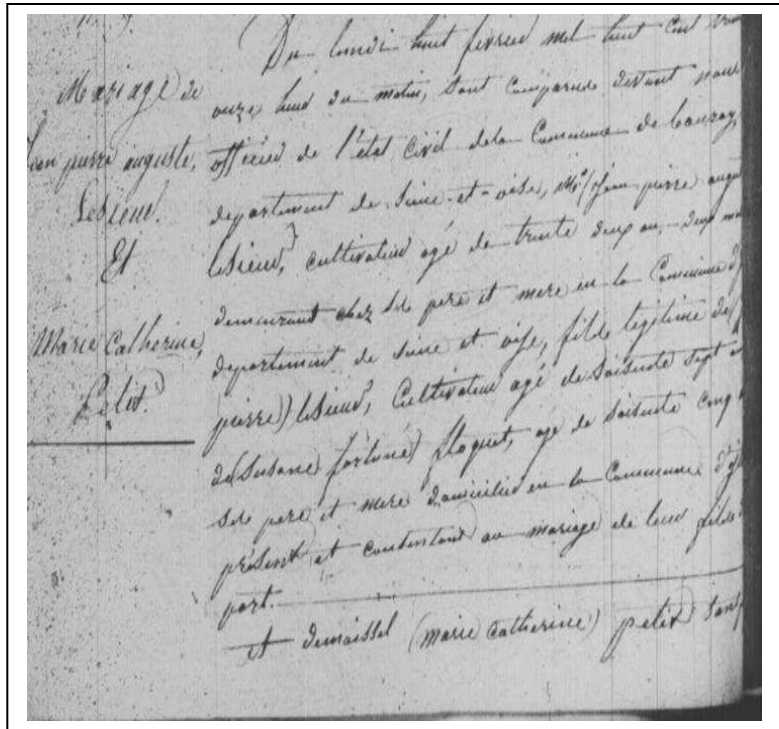 Mariage de
Jean pierre auguste,
Lesieur.
Et
Marie Catherine,
Petit.
Du lundi huit fevrier mil huit cent
onze heure du matin, sont comparus devant nous
officier de l'état civil de la Commune de
departement de Seine-et-oise, Mr. (Jean pierre
Lesieur, cultivateur agé de trente deux an
demeurant chez Ses pere et mere en la Commune
departement de Seine et oise, fils legitime de
pierre) Lesieur, Cultivateur agé de Soisente sept
de (Susane fortuné) floquet, age de soisente cinq
Ses pere et mere domicilié en la Commune
présent et consentant au mariage de leur fils
part.
et demoissel (marie catherine) petit